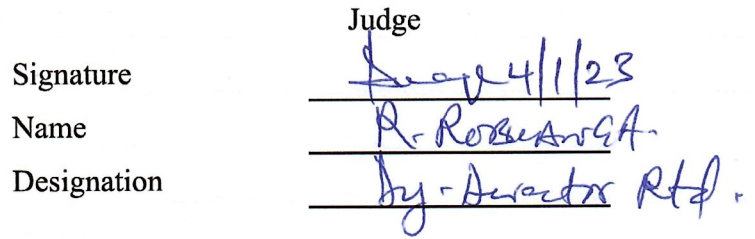 Judge
Signature 4/1/23
Name R. ROBUANGA.
Designation Dy-Director Rtd.